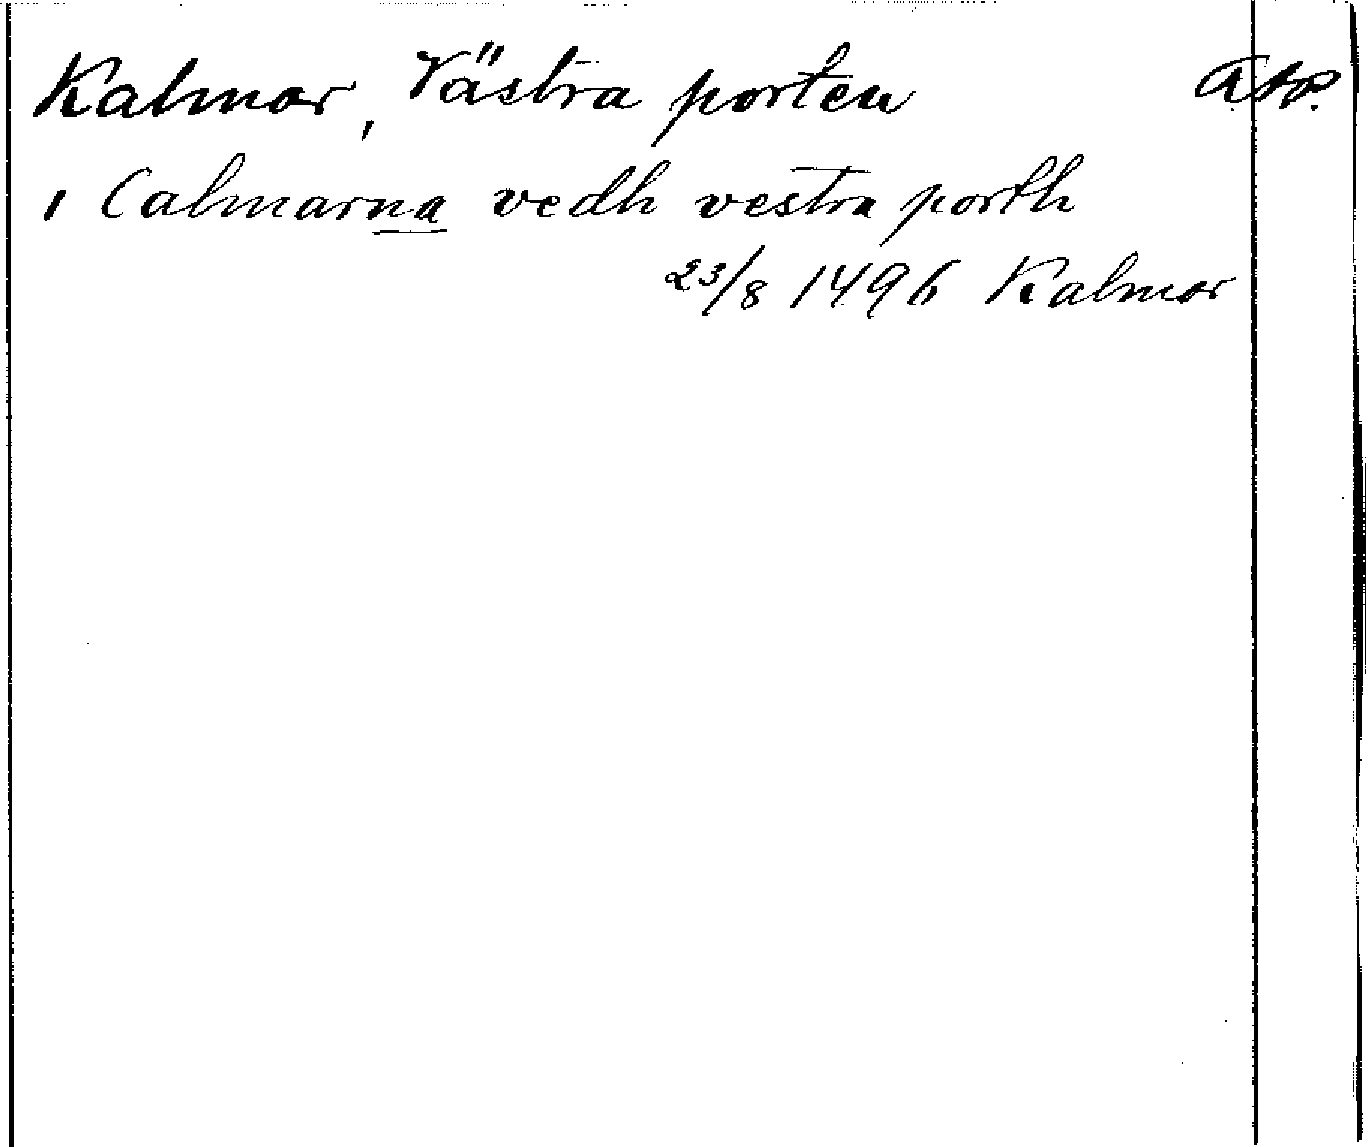 Kalmar, Västra porten
i Calmarna vedh vestra porth
23/8 1496 Kalmar